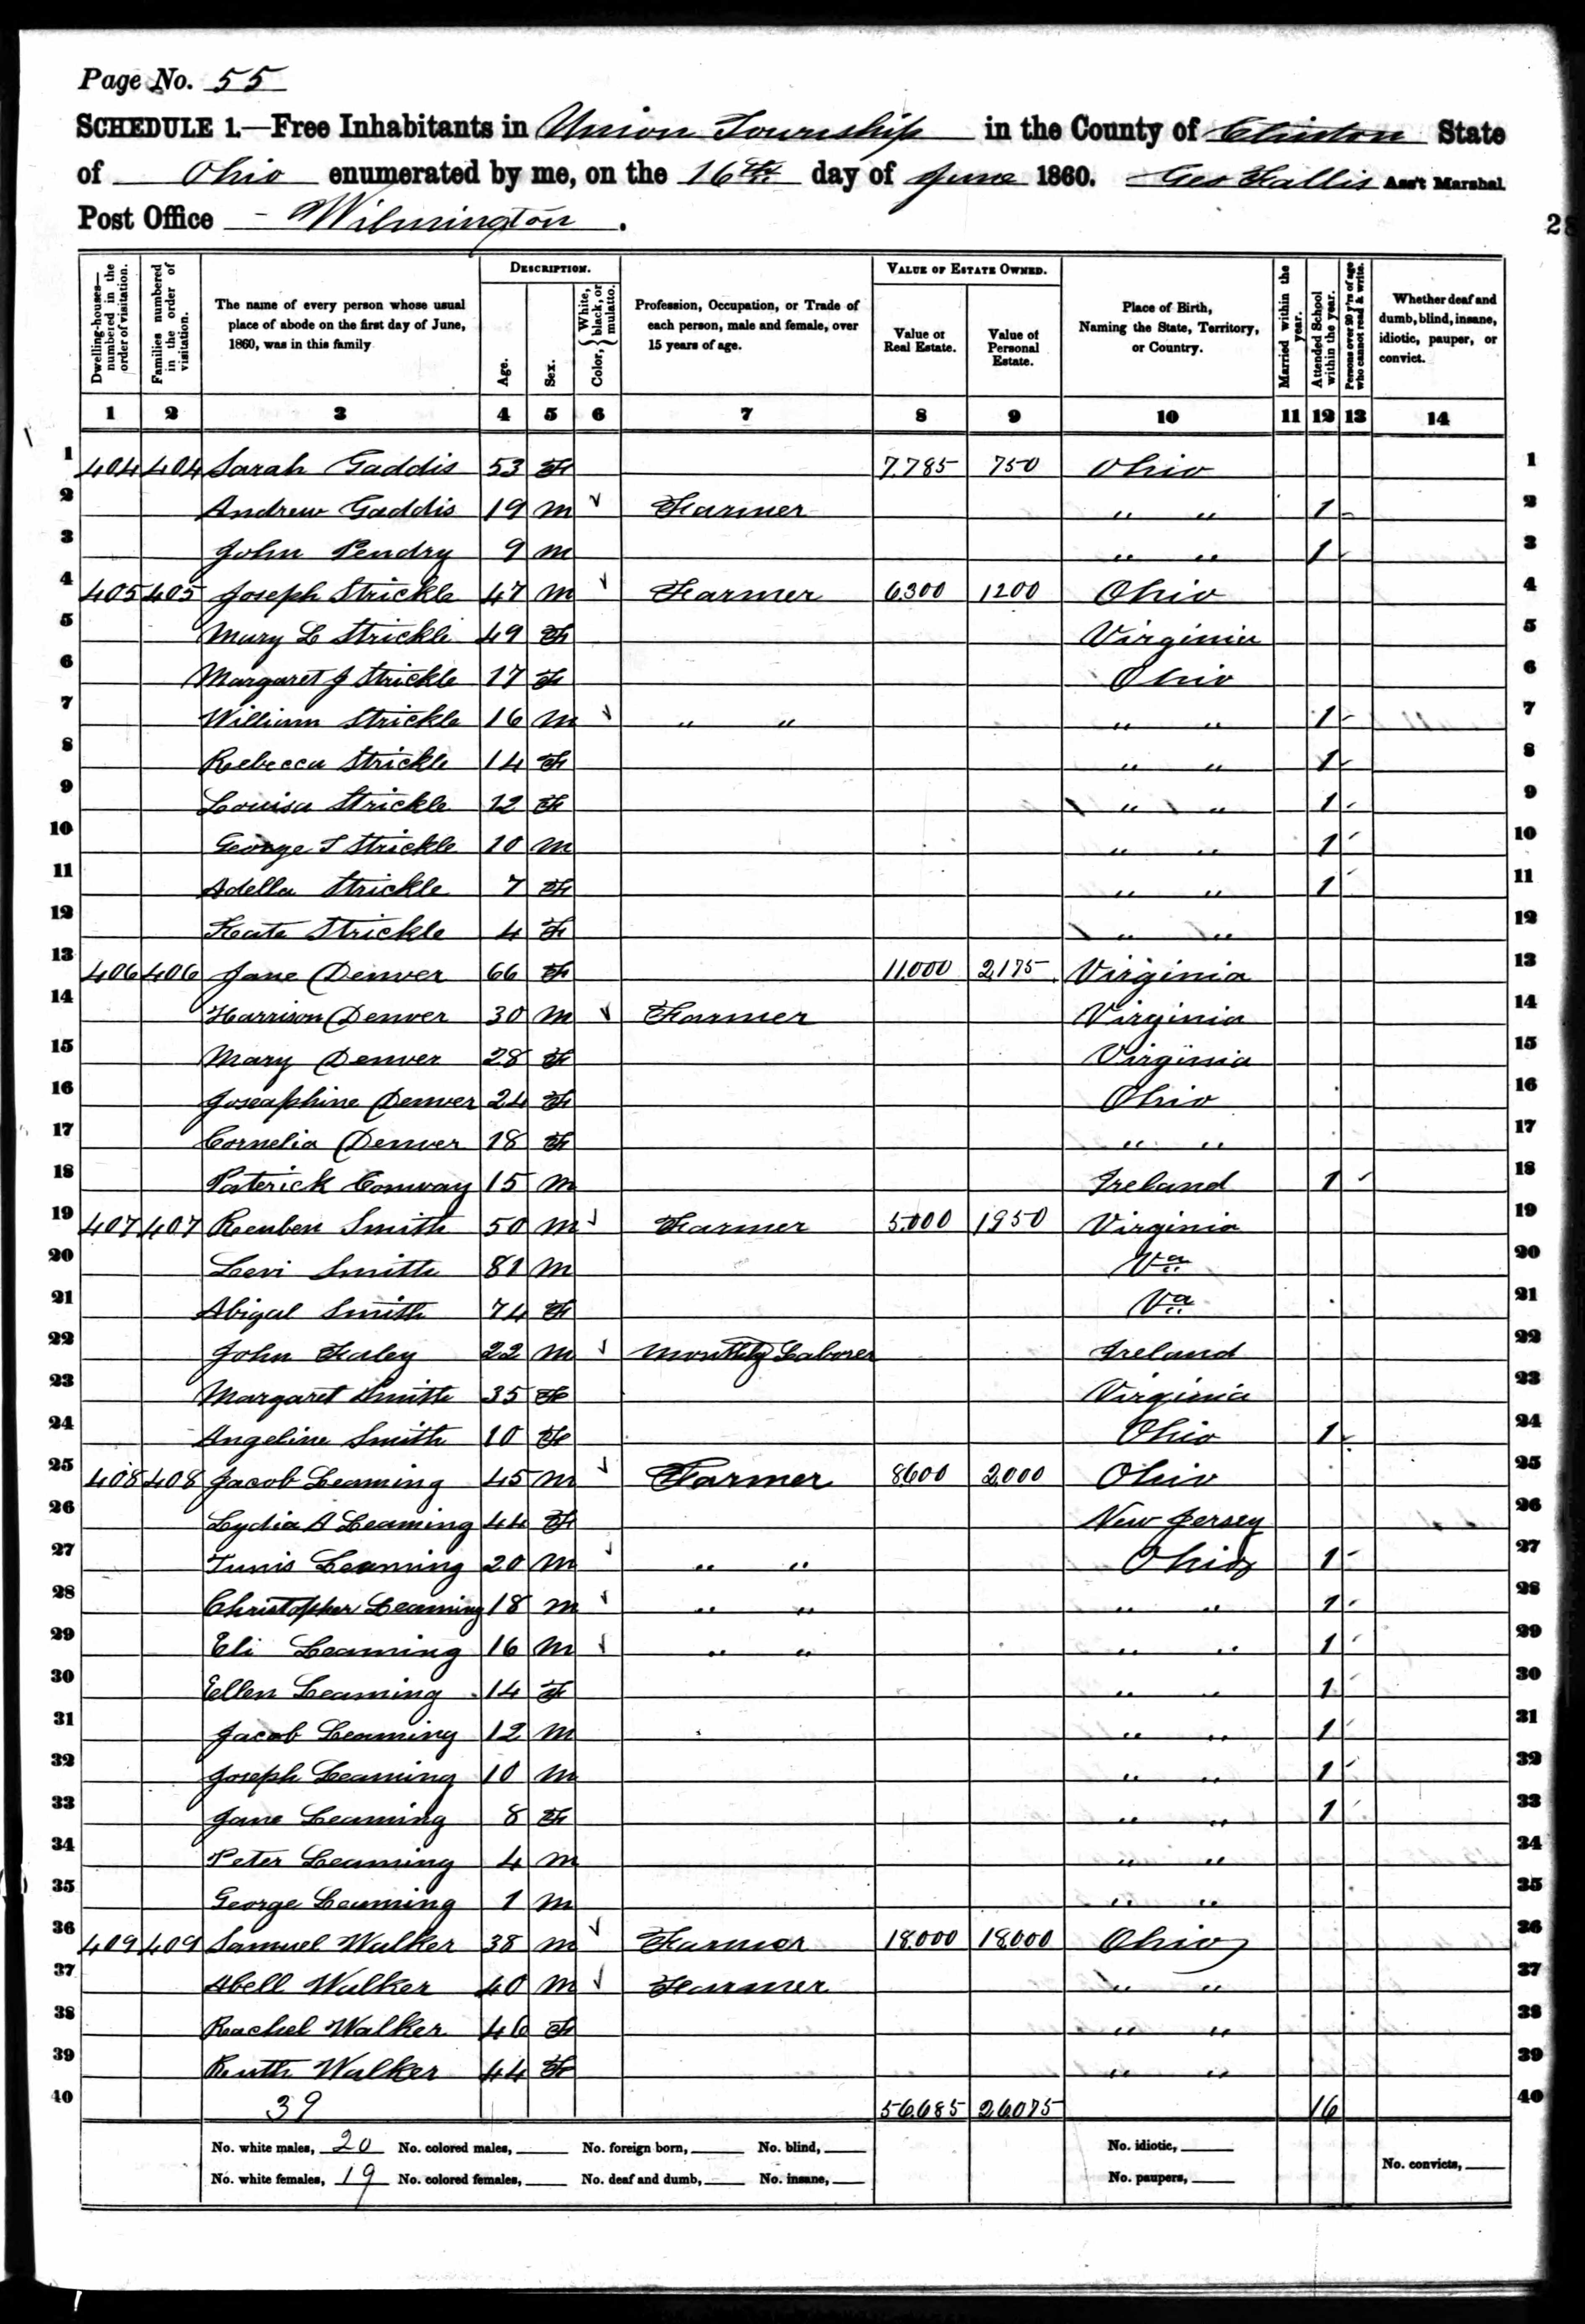 Page No. 55
SCHEDULE 1.—Free Inhabitants in Union Township in the County of Clinton State
of Ohio enumerated by me, on the 16th day of June 1860. Geo Fallis Ass't Marshal.
Post Office - Wilmington.
28
Dwelling-houses—numbered in the order of visitation. Families numbered in the order of visitation. The name of every person whose usual place of abode on the first day of June, 1860, was in this family DESCRIPTION. Age. Sex. Color, White, black, or mulatto. Profession, Occupation, or Trade of each person, male and female, over 15 years of age. VALUE OF ESTATE OWNED. Value of Real Estate. Value of Personal Estate. Place of Birth, Naming the State, Territory, or Country. Married within the year. Attended School within the year. Persons over 20 y'rs of age who cannot read & write. Whether deaf and dumb, blind, insane, idiotic, pauper, or convict.
1 2 3 4 5 6 7 8 9 10 11 12 13 14
1 404 404 Sarah Gaddis 53 F 7,785 750 Ohio 1
2 Andrew Gaddis 19 m Farmer " " 1 2
3 John Pendry 9 m " " 1 3
4 405 405 Joseph Strickle 47 m Farmer 6,300 1200 Ohio 4
5 Mary L Strickle 49 F Virginia 5
6 Margaret J Strickle 17 F Ohio 6
7 William Strickle 16 m " " " " 1 7
8 Rebecca Strickle 14 F " " 1 8
9 Louisa Strickle 12 F " " 1 9
10 George T Strickle 10 m " " 1 10
11 Adella Strickle 7 F " " 1 11
12 Kate Strickle 4 F " " 12
13 406 406 Jane Denver 66 F 11,000 2,175 Virginia 13
14 Harrison Denver 30 m Farmer Virginia 14
15 Mary Denver 28 F Virginia 15
16 Joseaphine Denver 24 F Ohio 16
17 Cornelia Denver 18 F " " 17
18 Paterick Conway 15 m Ireland 1 18
19 407 407 Reuben Smith 50 m Farmer 5,000 1950 Virginia 19
20 Levi Smith 81 m Va 20
21 Abigal Smith 74 F Va 21
22 John Faley 22 m Monthly Laborer Ireland 22
23 Margaret Smith 35 F Virginia 23
24 Angeline Smith 10 F Ohio 1 24
25 408 408 Jacob Leaming 45 m Farmer 8,600 2,000 Ohio 25
26 Lydia A Leaming 44 F New Jersey 26
27 Tunis Leaming 20 m " " Ohio 1 27
28 Christopher Leaming 18 m " " " " 1 28
29 Eli Leaming 16 m " " " " 1 29
30 Ellen Leaming 14 F " " 1 30
31 Jacob Leaming 12 m " " 1 31
32 Joseph Leaming 10 m " " 1 32
33 Jane Leaming 8 F " " 1 33
34 Peter Leaming 4 m " " 34
35 George Leaming 1 m " " 35
36 409 409 Samuel Walker 38 m Farmer 18,000 18,000 Ohio 36
37 Abell Walker 40 m Farmer " " 37
38 Rachel Walker 46 F " " 38
39 Ruth Walker 44 F " " 39
40 39 56,685 26,075 16 40
No. white males, 20 No. colored males, No. foreign born, No. blind, No. idiotic,
No. white females, 19 No. colored females, No. deaf and dumb, No. insane, No. paupers, No. convicts,